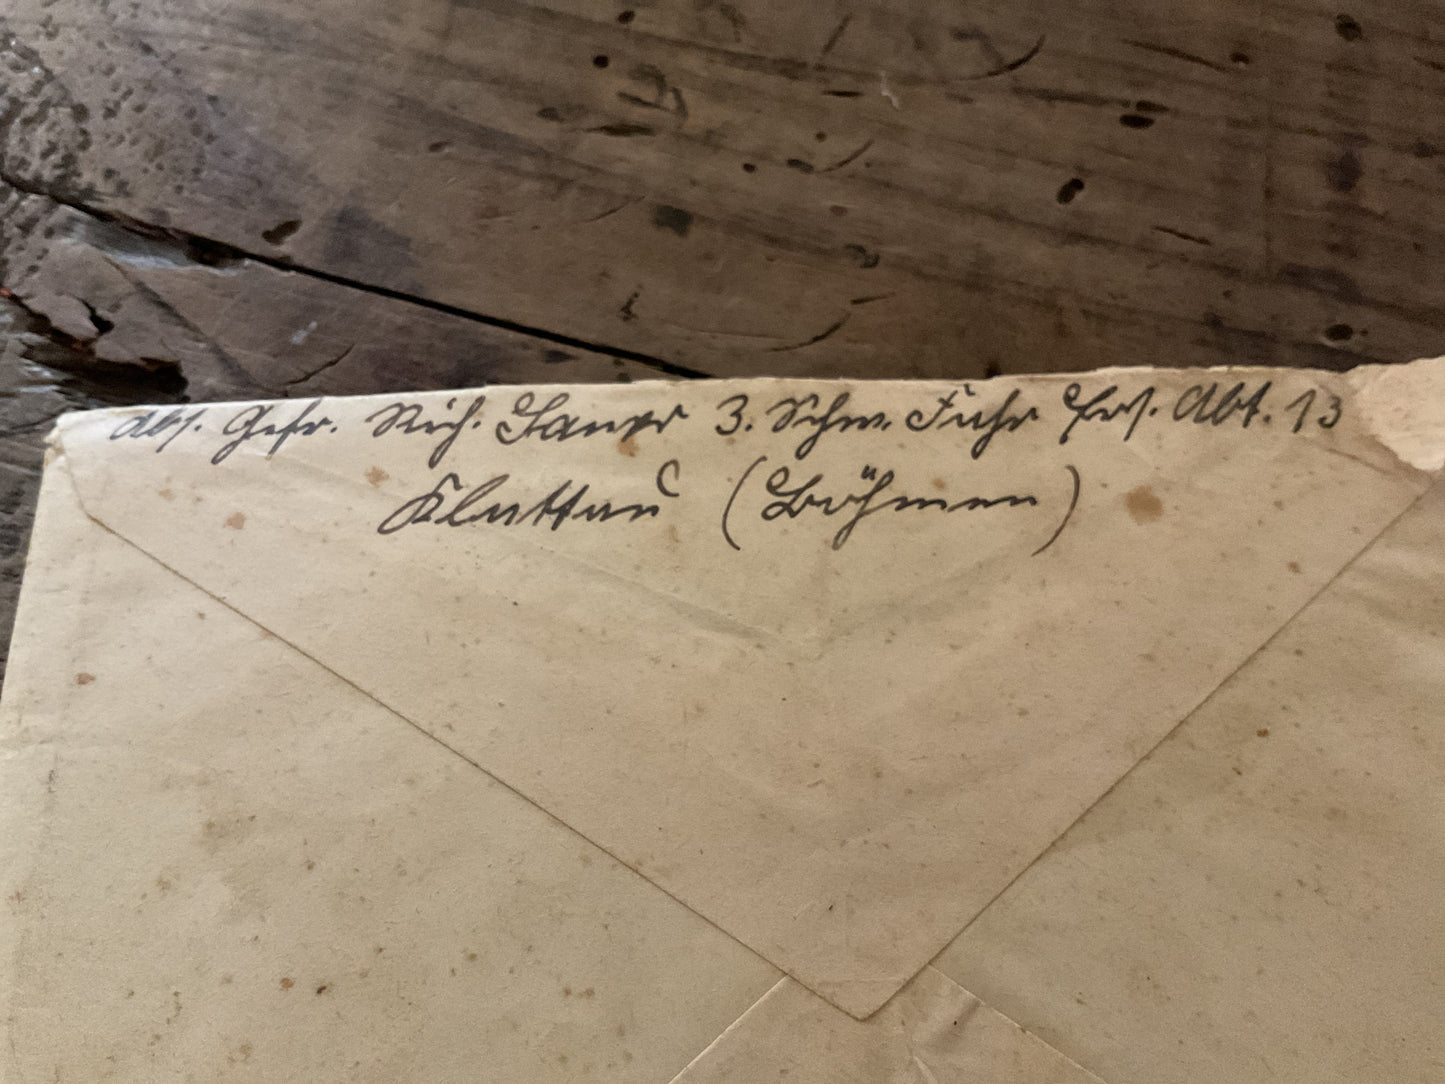 Abs. Gefr. Rich. Sauer 3. Schw. Fuhr Ers. Abt. 13
Klattau (Böhmen)